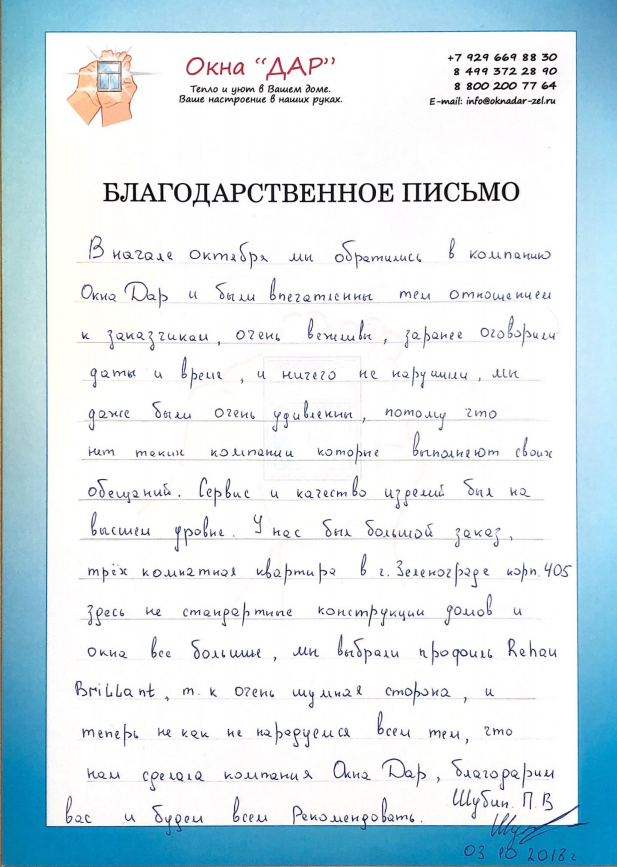 Окна “ДАР”
Тепло и уют в Вашем доме.
Ваше настроение в наших руках.
+7 929 669 88 30
8 499 372 28 90
8 800 200 77 64
E-mail: info@oknadar-zel.ru
БЛАГОДАРСТВЕННОЕ ПИСЬМО
В начале октября мы обратились в компанию
Окна Дар и были впечатленны тем отношением
к заказчикам, очень вежливы, заранее оговорили
даты и время, и ничего не нарушили, мы
даже были очень удивленны, потому что
нет таких компании которые выполняют своих
обещаний. Сервис и качество изделий был на
высшем уровне. У нас был большой заказ,
трёх комнатная квартира в г. Зеленограде корп. 405
здесь не стандартные конструкции домов и
окна все большие, мы выбрали профиль Rehau
Brillant, т.к очень шумная сторона, и
теперь не как не нарадуемся всем тем, что
нам сделала компания Окна Дар, благодарим
вас и будем всем Рекомендовать.
Шубин. П.В
03 10 2018г